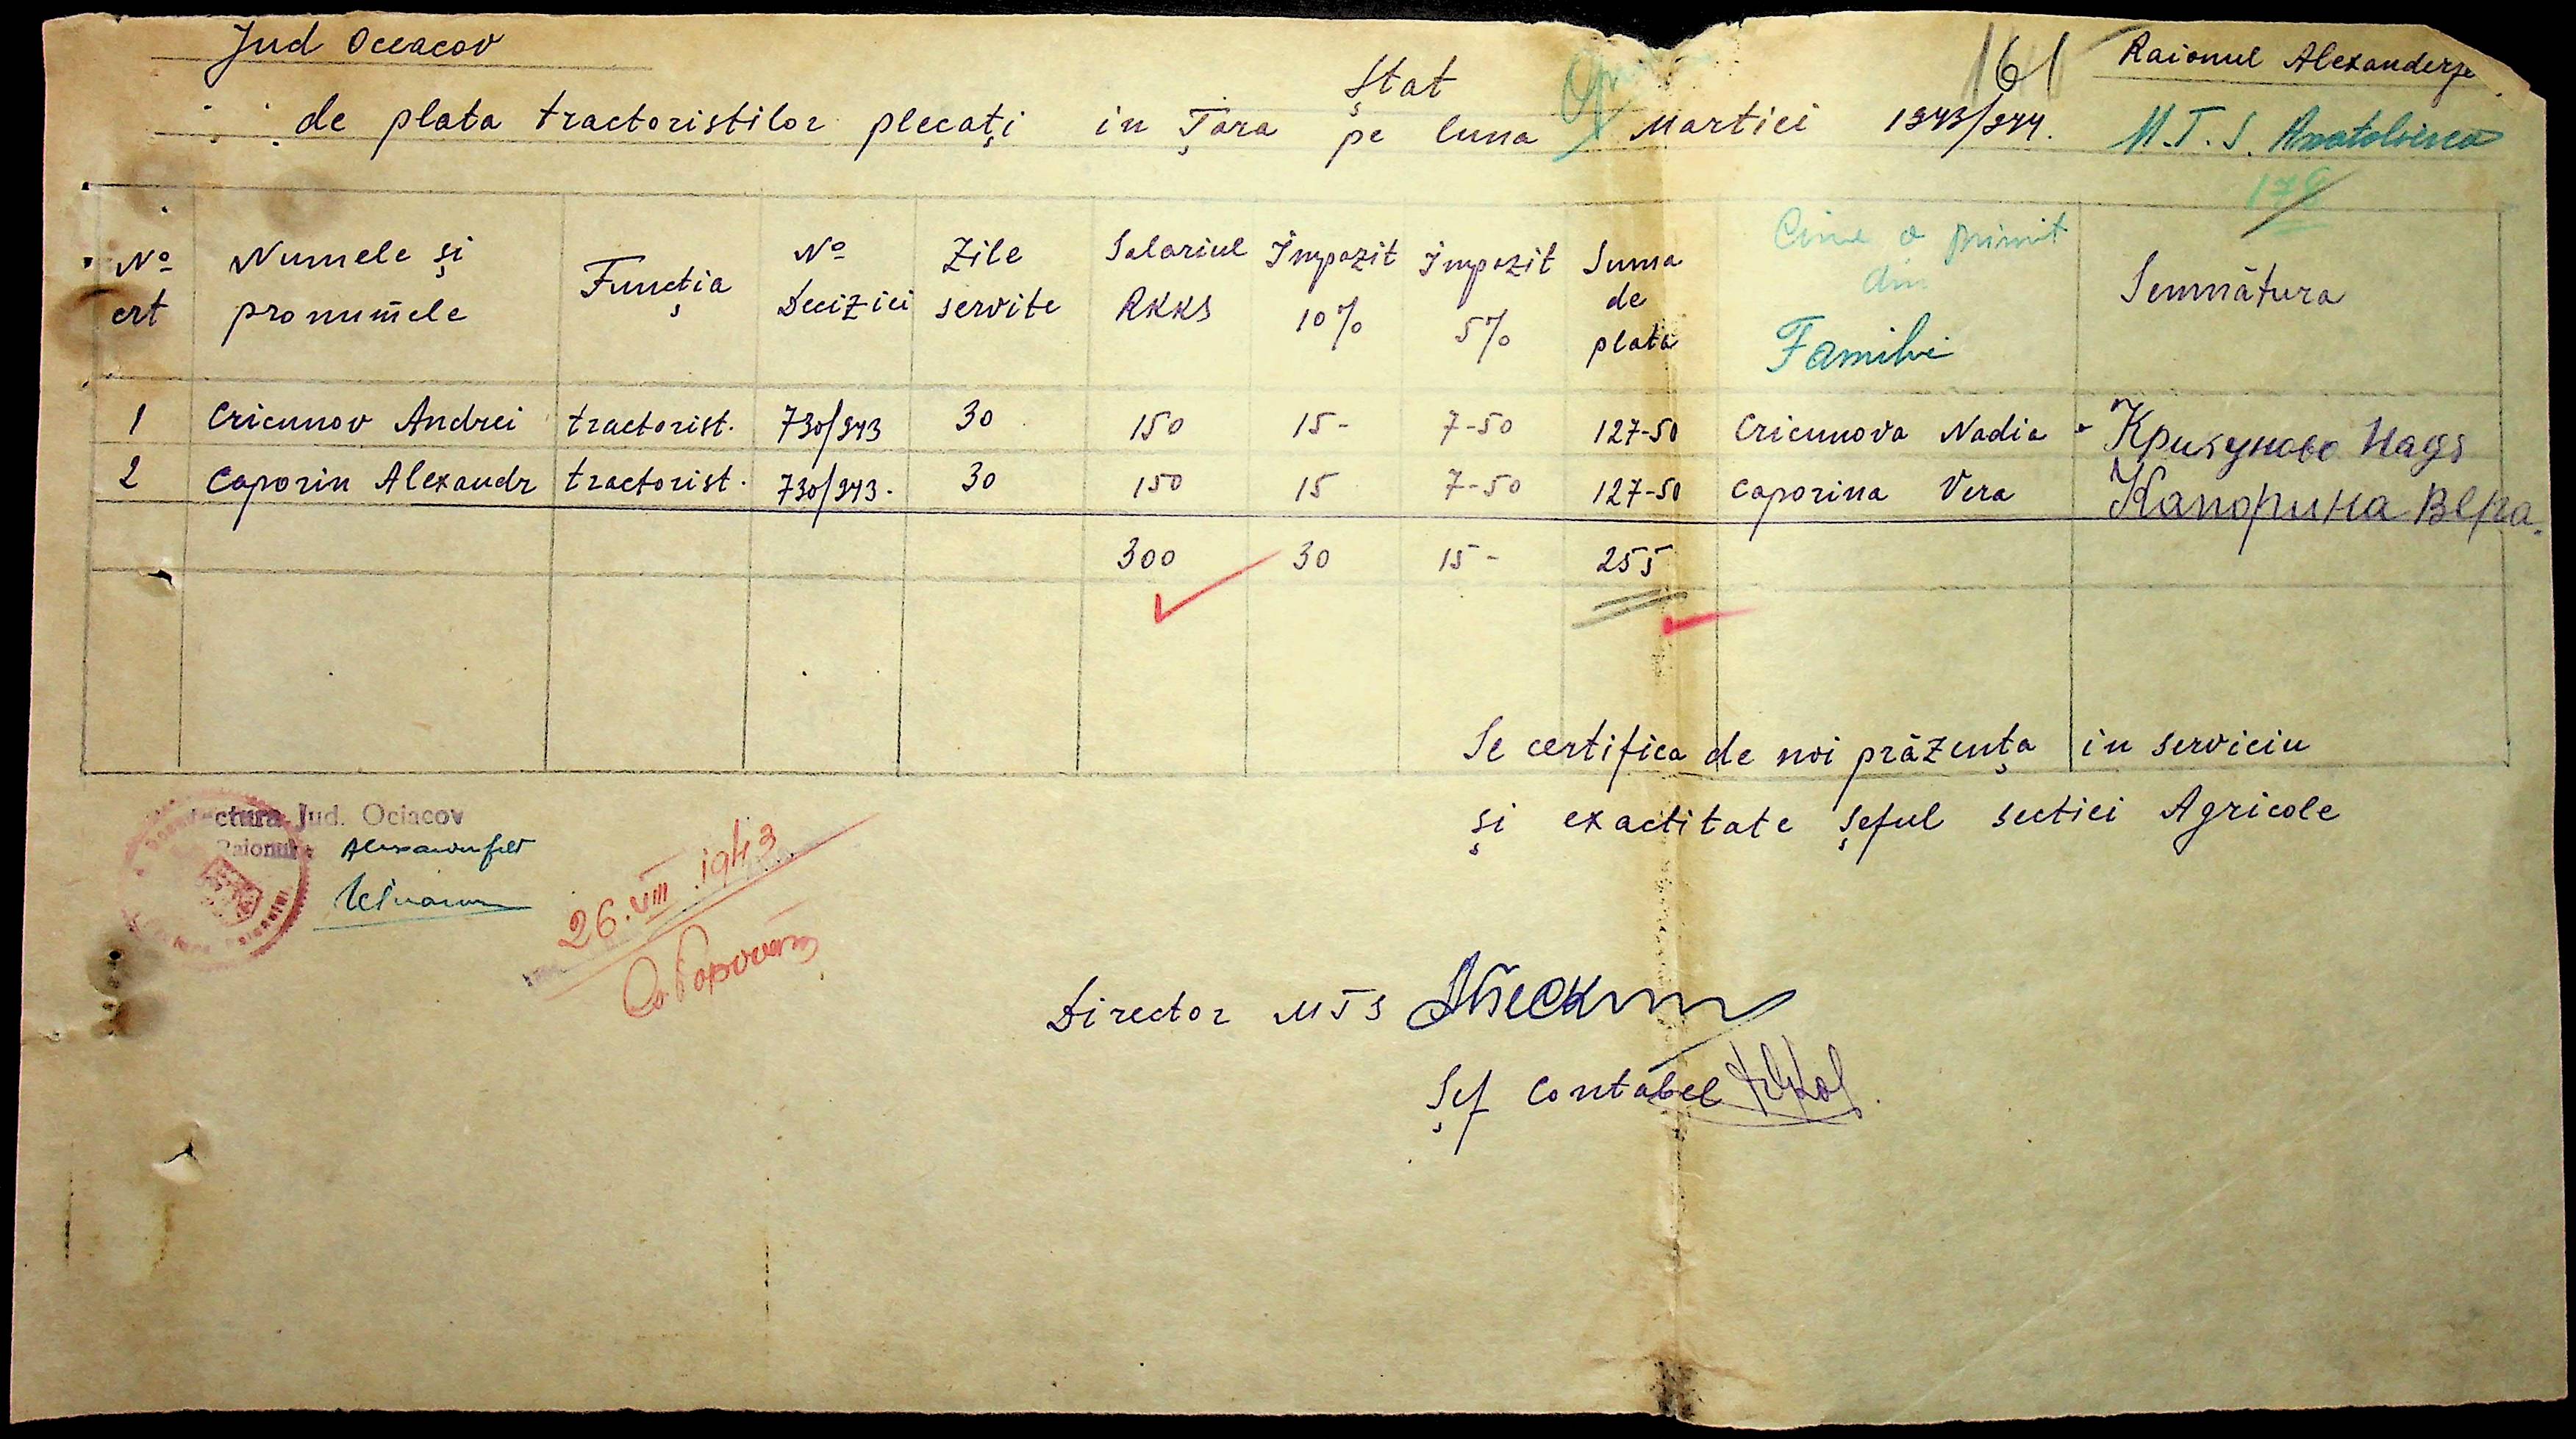 Jud Oceacov
161
Raionul Alexanderfe
Ștat
de plata tractoristilor plecați in Țara pe luna Martiei 1943/944.
M.T.S. Anatolievca
176
No crt | Numele și pronumele | Funcția | No Deciziei | Zile servite | Salariul RKKS | Impozit 10% | Impozit 5% | Suma de plata | Cine a primit din Familie | Semnătura
1 | Cricunov Andrei | tractorist. | 730/943 | 30 | 150 | 15- | 7-50 | 127-50 | Cricunova Nadia | Крикунова Надя
2 | Caporin Alexandr | tractorist. | 730/943. | 30 | 150 | 15 | 7-50 | 127-50 | Caporina Vera | Капорина Вера.
300 | 30 | 15- | 255
Se certifica de noi prăzența in serviciu
și exactitate șeful sectiei Agricole
ctura Jud. Ociacov
Raionul Alexanderfelt
26.VIII.1943
Director MTS
Șef Contabel